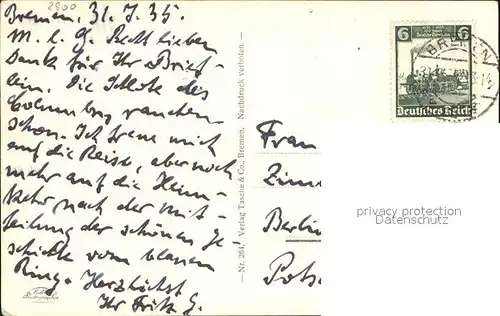 2800
Bremen, 31.7.35.
M. l. G. Recht lieben
Dank für Ihr Brief-
lein. Die Schlote des
Columbus rauchen
schon. Ich freue mich
auf die Reise, aber noch
mehr auf die Heim-
kehr nach der Mit-
teilung der schönen Ge-
schichte vom blauen
Ring. Herzlichst
Ihr Fritz G.
— Nr. 264. Verlag Tasche & Co., Bremen. Nachdruck verboten. —
6 6
Deutsches Reich
BREMEN
Frau
Zim
Berlin
Pots
privacy protection
Datenschutz